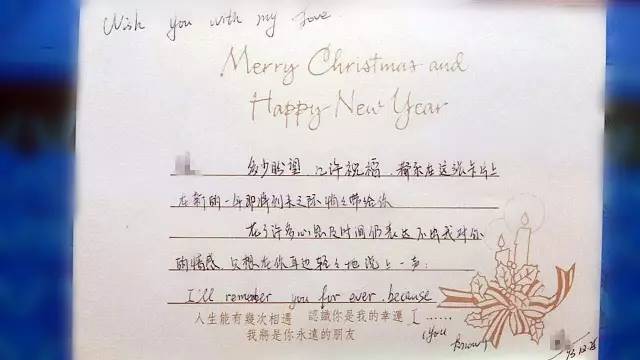 Wish you with my love.
Merry Christmas and
Happy New Year
多少盼望，几许祝福，都系在这张卡片上
在新的一年即将到来之际悄々带给你
许多心思及时间仍表达不出我对你
的情感，只想在你耳边轻々地说上一声：
I'll remember you for ever. because
人生能有幾次相遇 認識你是我的幸運 I ......
我將是你永遠的朋友 (You know)
95.12.25